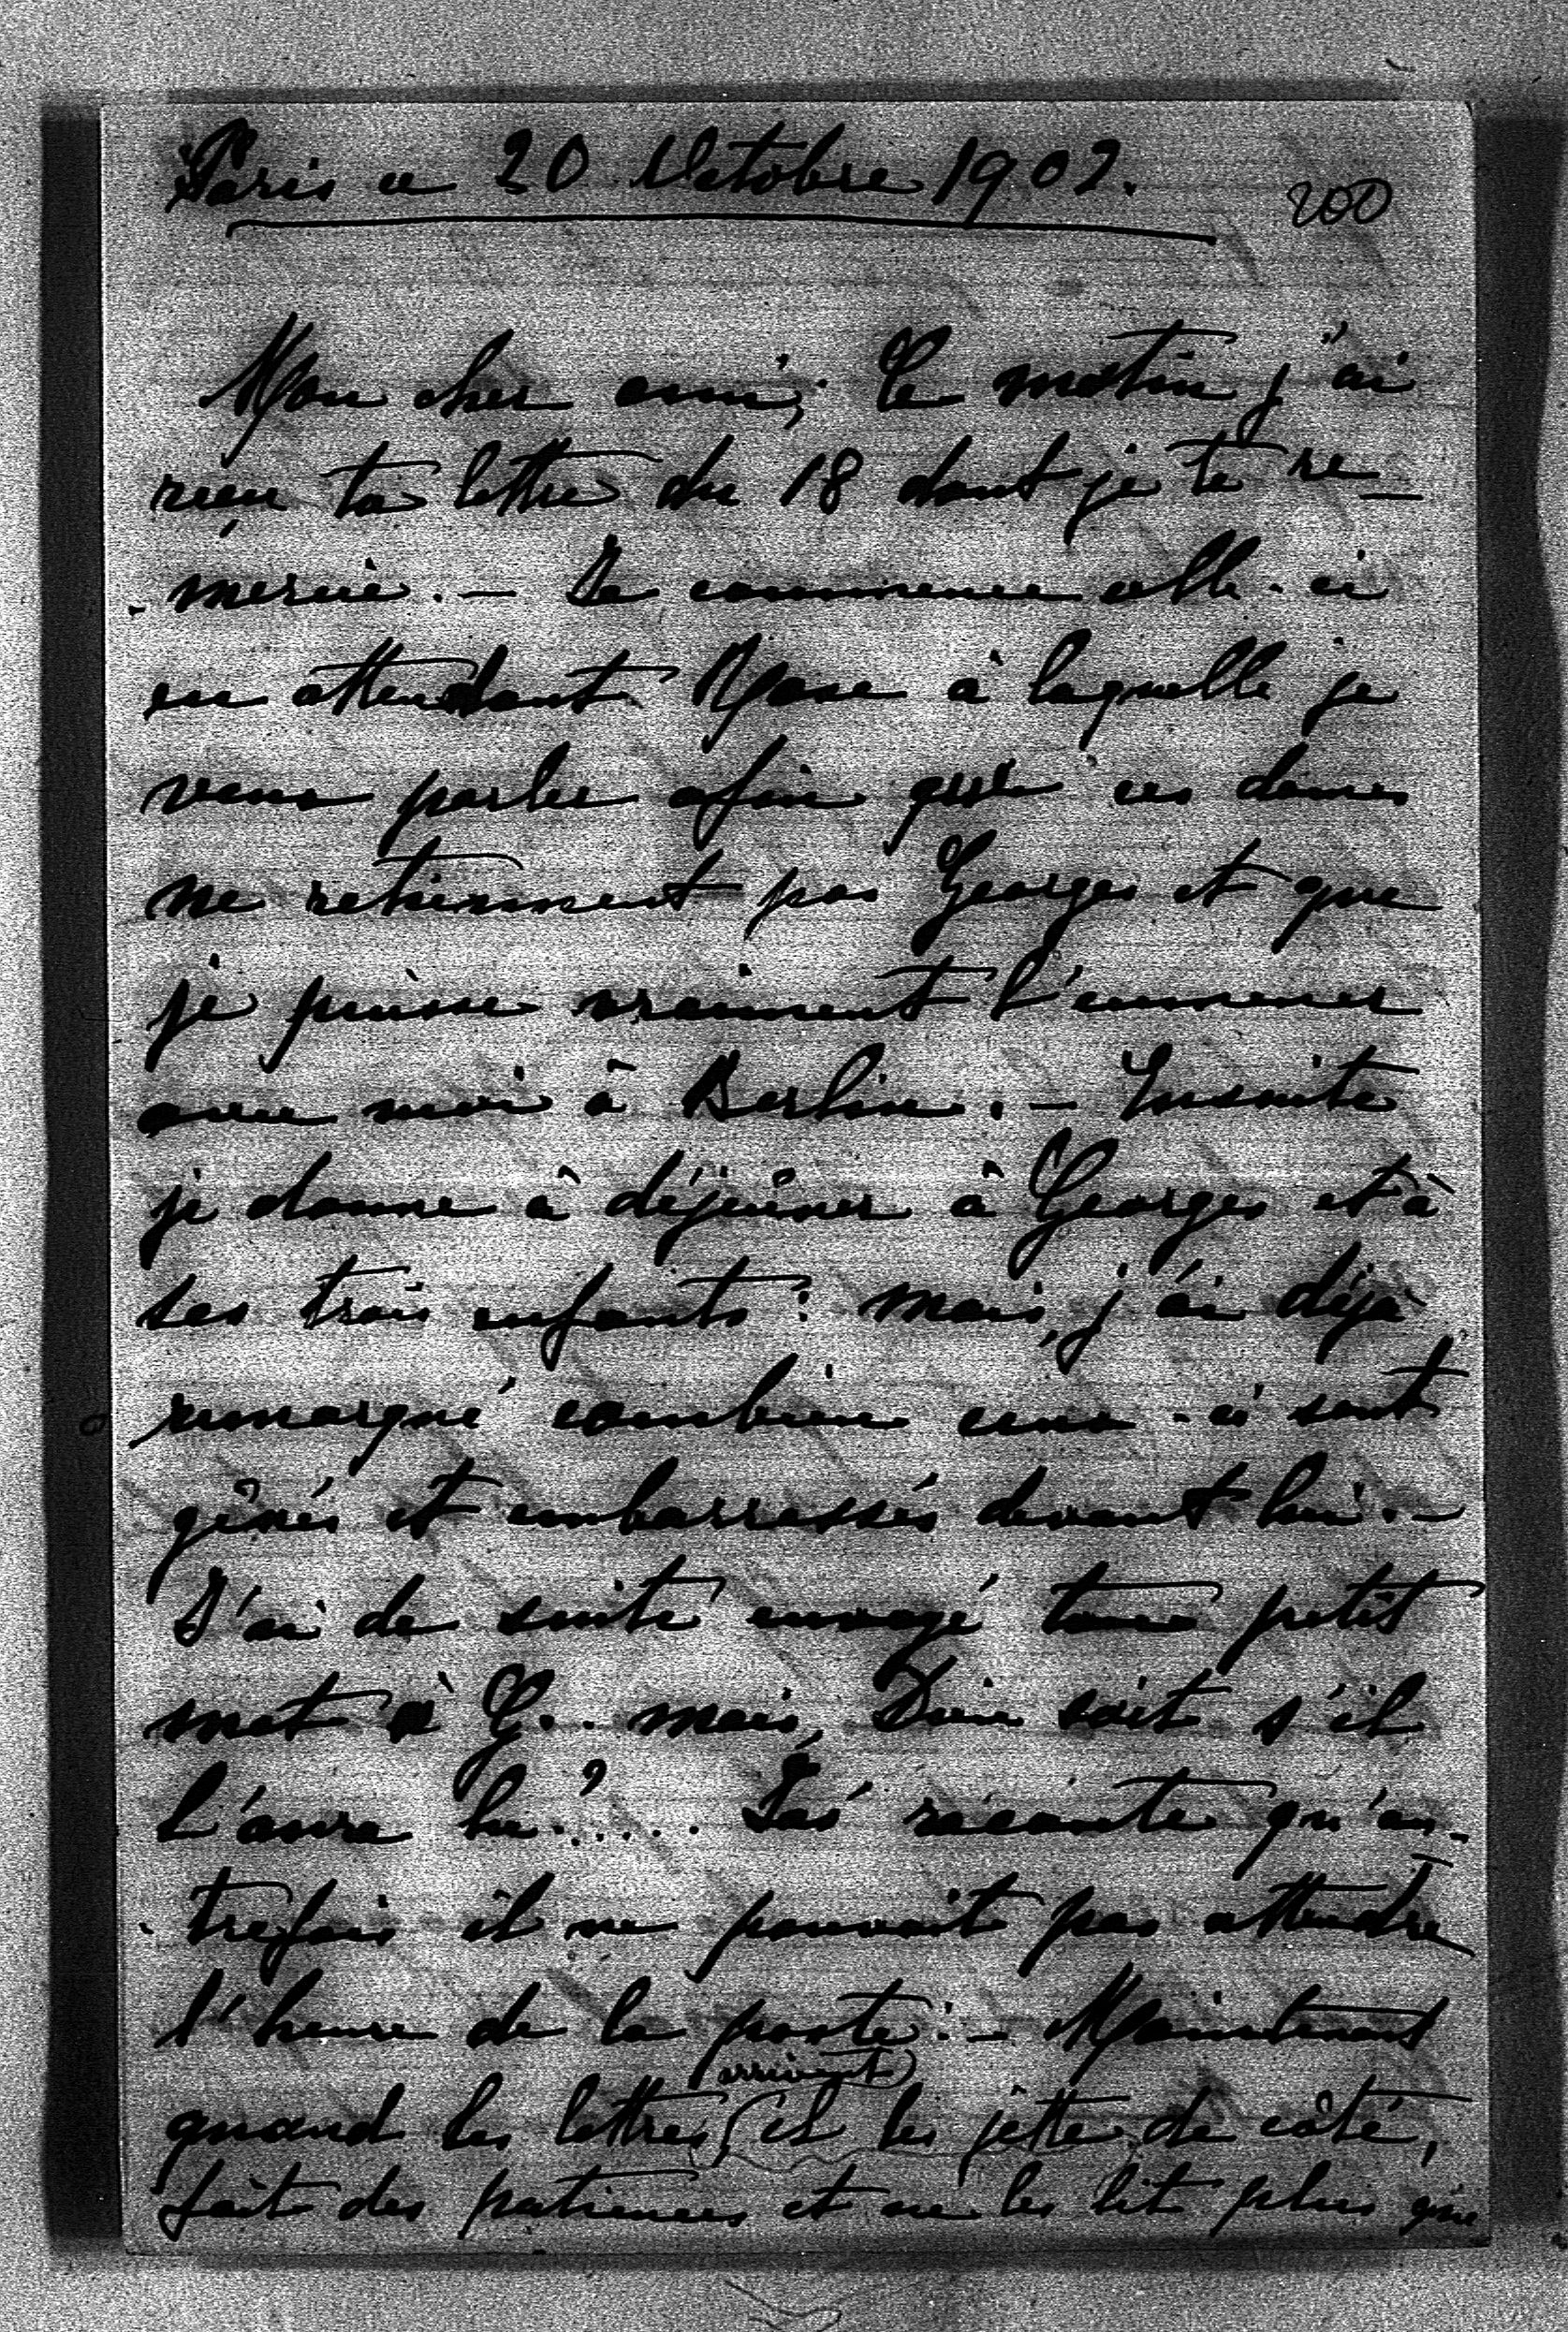 Paris ce 20 Octobre 1902.
200
Mon cher ami, Ce matin j'ai
reçu ta lettre du 18 dont je te re-
-mercie. — Je commence celle-ci
en attendant à laquelle je
veux parler afin que ces dames
ne retiennent pas Georges et que
je puisse vraiment l'emmener
avec moi à Berlin. — Ensuite
je donne à déjeûner à Georges et à
ses trois enfants : mais, j'ai déjà
remarqué combien ceux-ci sont
gênés et embarrassés devant lui. —
J'ai de suite envoyé ton petit
mot à G.. mais, Dieu sait s'il
l'aura lu?..... raconte qu'au-
-trefois il ne pouvait pas attendre
l'heure de la poste : — Maintenant
quand les lettres arrivent il les jette de côté,
fait des patiences et ne les lit plus que